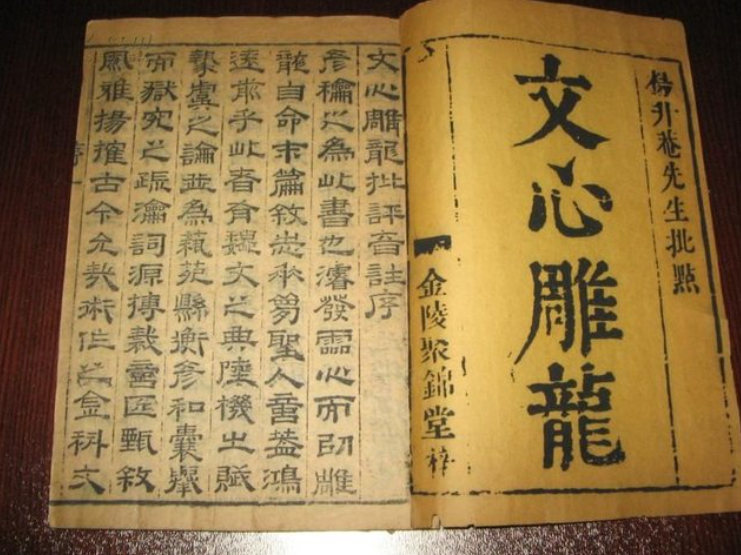 楊升菴先生批點
文心雕龍
金陵聚錦堂梓
文心雕龍批評音註序
彥龢之為此書也濬發靈心而以雕
龍自命末篇敘志垂夢聖人意益鴻
遠前乎此者有魏文之典陸機之賦
摯虞之論並為藝苑縣衡彥和囊舉
而獄究之疏瀹詞源博裁意匠甄敘
風雅揚搉古今允哉術作之金科文
序
一